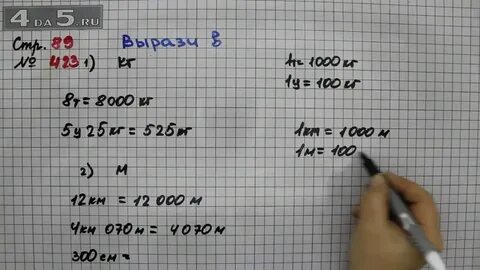 4DA5.RU
Стр. 89 Вырази в
№ 423 1) кг
8т = 8000 кг
5ц 25кг = 525кг
2) м
12км = 12 000 м
4км 070м = 4070м
300см =
1т = 1000 кг
1ц = 100 кг
1км = 1000 м
1м = 100